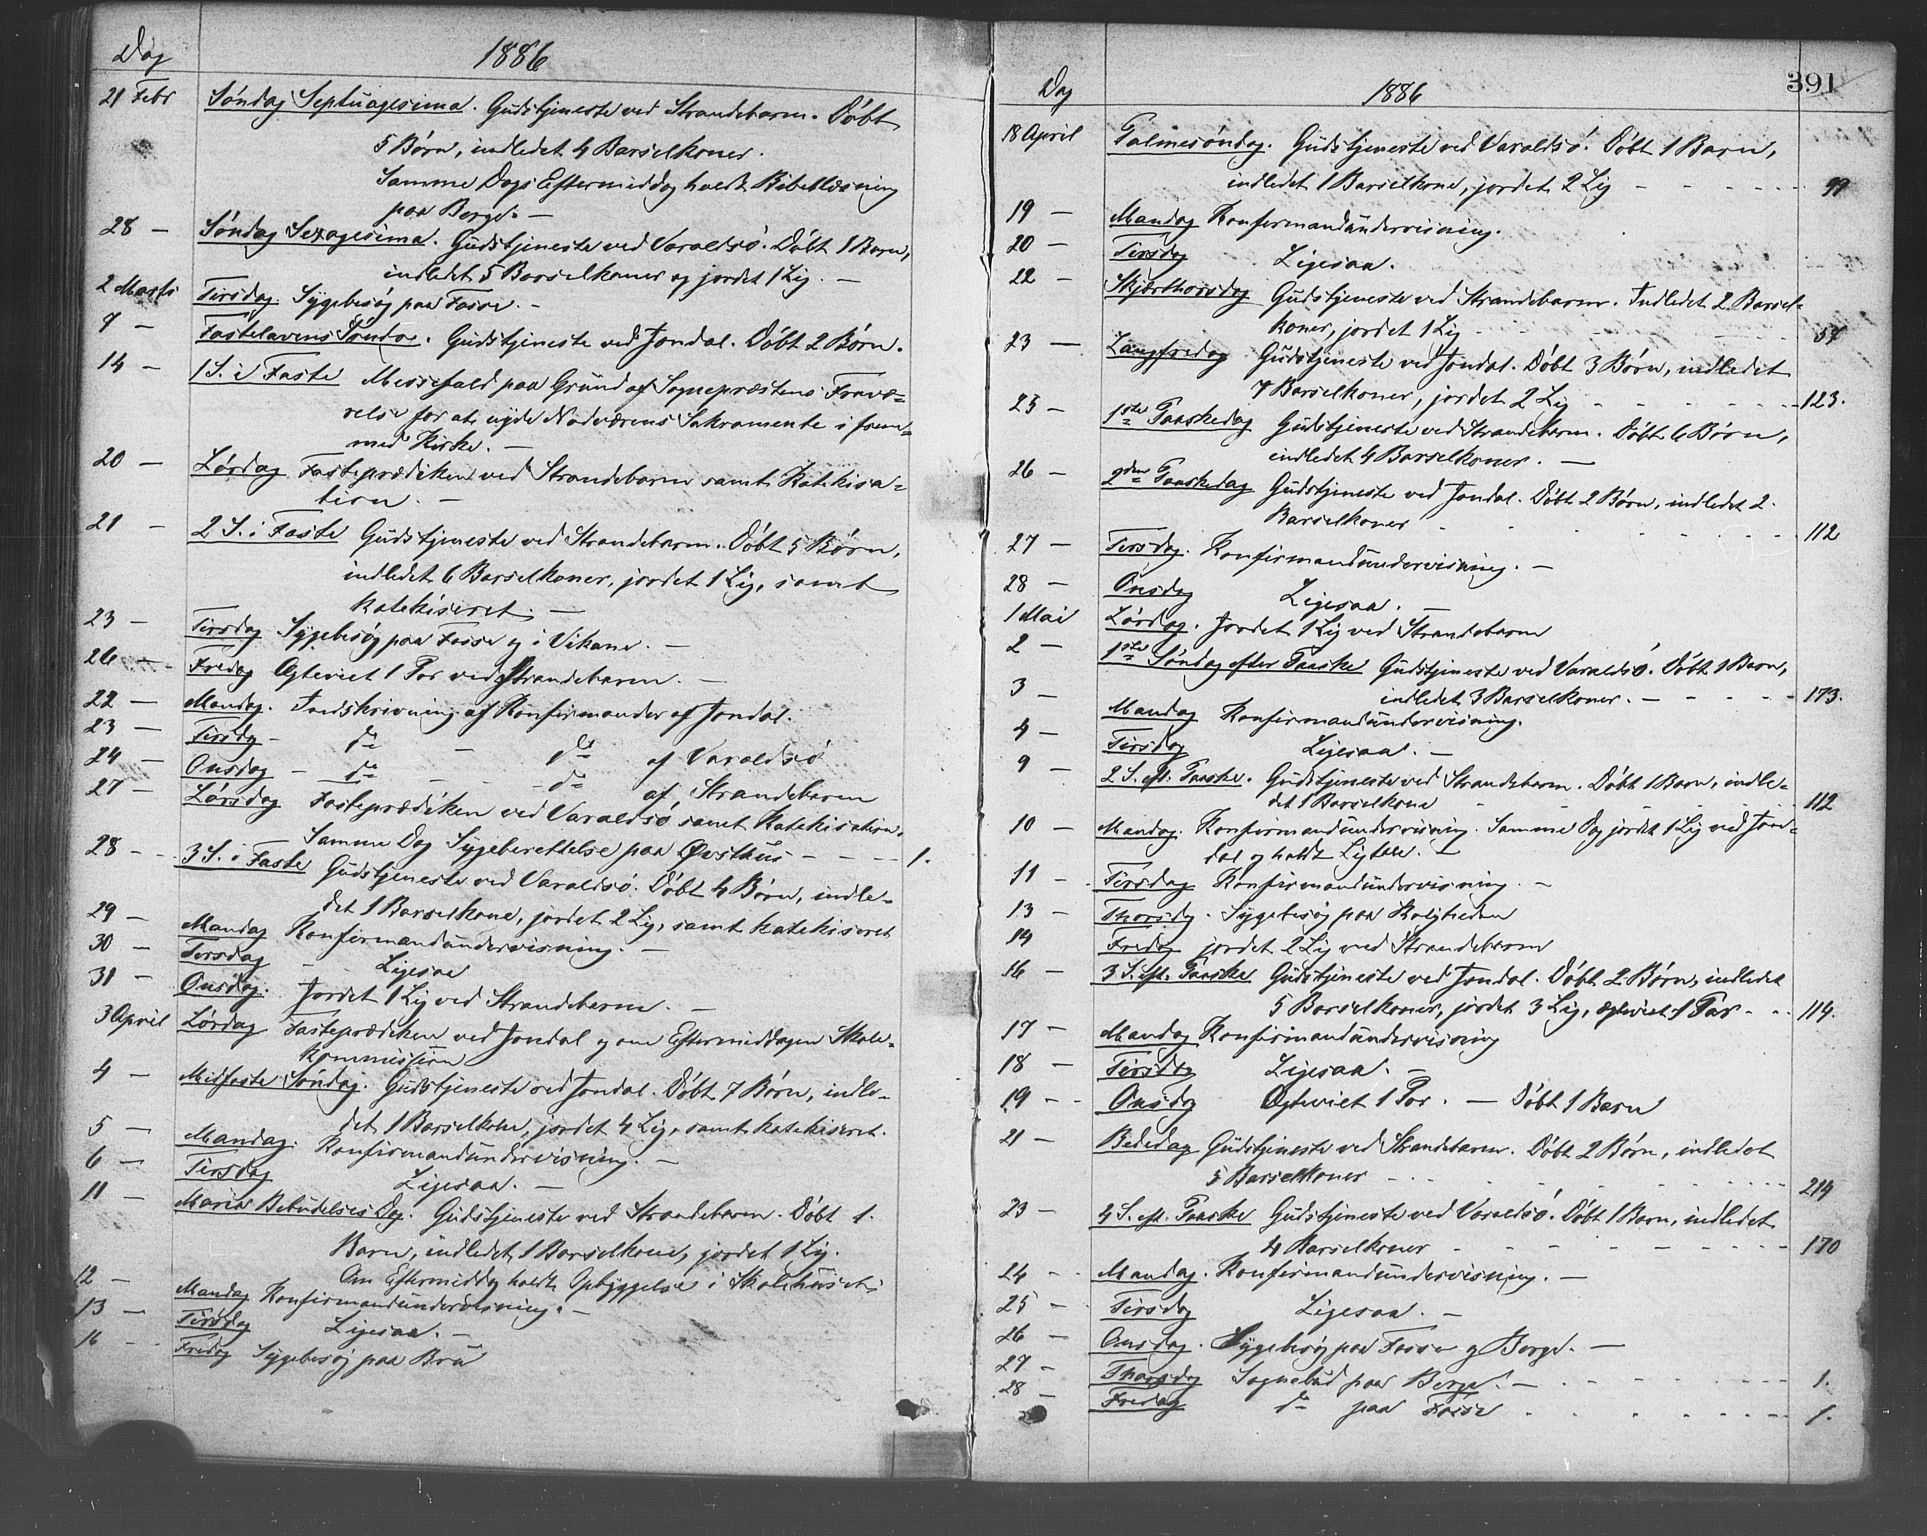 Dag
1886
21 Febr Søndag Septuagesima. Gudstjeneste ved Strandebarm. Døbt
5 Børn, indledet 4 Barselkoner.
Samme Dags Eftermiddag holdt Bibellæsning
paa Berge. —
28 — Søndag Sexagesima. Gudstjeneste ved Varaldsø. Døbt 1 Barn,
indledet 5 Barselkoner og jordet 1 Lig. —
2 Marts Tirsdag. Sygebesøg paa Fosse. —
7 — Fastelavens Søndag. Gudstjeneste ved Jondal. Døbt 2 Børn.
14 — 1 S. i Faste Messefald paa Grund af Sognepræstens Fravæ-
relse for at nyde Nadverens Sakramente i frem-
med Kirke. —
20 — Lørdag Fasteprædiken ved Strandebarm samt Katekisa-
tion. —
21 — 2 S. i Faste Gudstjeneste ved Strandebarm. Døbt 5 Børn,
indledet 6 Barselkoner, jordet 1 Lig, samt
katekiseret. —
23 — Tirsdag Sygebesøg paa Fosse og i Vikane. —
26 — Fredag Ægteviet 1 Par ved Strandebarm. —
22 — Mandag. Indskrivning af Konfirmander af Jondal.
23 — Tirsdag — do — do af Varaldsø
24 — Onsdag — do — — do af Strandebarm
27 — Lørdag Fasteprædiken ved Varaldsø, samt Katekisation.
Samme Dag Sygeberettelse paa Østhus — — — — 1.
28 — 3 S. i Faste Gudstjeneste ved Varaldsø. Døbt 4 Børn, indle-
det 1 Barselkone, jordet 2 Lig, samt katekiseret
29 — Mandag Konfirmandundervisning. —
30 — Tirsdag — Ligesaa
31 — Onsdag. Jordet 1 Lig ved Strandebarm. —
3 April Lørdag Fasteprædiken ved Jondal og om Eftermiddagen Skole-
kommission
4 — Midfaste Søndag. Gudstjeneste ved Jondal. Døbt 7 Børn, indle-
det 1 Barselkone, jordet 4 Lig, samt katekiseret.
5 — Mandag. Konfirmandundervisning. —
6 — Tirsdag Ligesaa. —
11 — Mariæ Bebudelses Dag. Gudstjeneste ved Strandebarm. Døbt 1.
Barn, indledet 1 Barselkone, jordet 1 Lig.
Om Eftermiddag holdt Opbyggelse i Skolehuset
12 — Mandag Konfirmandundervisning. —
13 — Tirsdag Ligesaa. —
16 — Fredag Sygebesøg paa Bru
391
Dag
1886
18 April Palmesøndag. Gudstjeneste ved Varaldsø. Døbt 1 Barn,
indledet 1 Barselkone, jordet 2 Lig — — — — 99
19 — Mandag Konfirmandundervisning.
20 — Tirsdag Ligesaa.
22 — Skjærthorsdag Gudstjeneste ved Strandebarm. Indledet 2 Barsel-
koner, jordet 1 Lig — — — — 57
23 — Langfredag Gudstjeneste ved Jondal. Døbt 3 Børn, indledet
7 Barselkoner, jordet 2 Lig — — — — 123.
25 — 1ste Paaskedag Gudstjeneste ved Strandebarm. Døbt 6 Børn,
indledet 4 Barselkoner. —
26 — 2den Paaskedag Gudstjeneste ved Jondal. Døbt 2 Børn, indledet 2.
Barselkoner — — — — 112
27 — Tirsdag. Konfirmandundervisning. —
28 — Onsdag Ligesaa. —
1 Mai Lørdag. Jordet 1 Lig ved Strandebarm
2 — 1ste Søndag efter Paaske Gudstjeneste ved Varaldsø. Døbt 1 Barn,
indledet 3 Barselkoner. — — — — 173.
3 — Mandag Konfirmandundervisning.
4 — Tirsdag Ligesaa. —
9 — 2 S. eft. Paaske. Gudstjeneste ved Strandebarm. Døbt 1 Barn, indle-
det 1 Barselkone — — — 112
10 — Mandag. Konfirmandundervisning. Samme Dag jordet 1 Lig ved Jon-
dal og holdt Ligtale. —
11 — Tirsdag Konfirmandundervisning. —
13 — Thorsdg. Sygebesøg paa
14 Fredag jordet 2 Lig ved Strandebarm
16 — 3 S. eft. Paaske Gudstjeneste ved Jondal. Døbt 2 Børn, indledet
5 Barselkoner, jordet 3 Lig, ægteviet 1 Par — — 114.
17 — Mandag Konfirmandundervisning
18 — Tirsdag Ligesaa. —
19 — Onsdag Ægteviet 1 Par. — Døbt 1 Barn
21 — Bededag Gudstjeneste ved Strandebarm. Døbt 2 Børn, indledet
5 Barselkoner — — — — 214
23 — 4 S. eft. Paaske Gudstjeneste ved Varaldsø. Døbt 1 Barn, indledet
4 Barselkoner — — — — 170
24 — Mandag. Konfirmandundervisning. —
25 — Tirsdag Ligesaa. —
26 — Onsdag. Sygebesøg paa Fosse og Berge. —
27 — Thorsdag Sognebud paa Berge. — — — — 1.
28 — Fredag do paa Fosse — — — — 1.